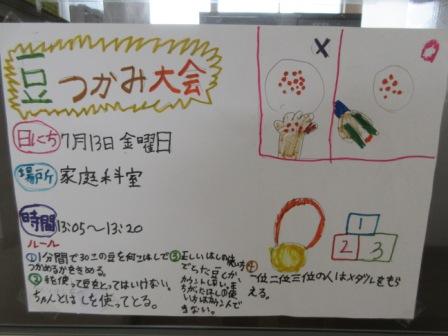 豆つかみ大会
×
○
日にち 7月13日 金曜日
場所 家庭科室
時間 13:05〜13:20
ルール
①1分間で30この豆を何こはしで
つかめるかをきめる。
②手を使って豆をとってはいけない。
ちゃんとはしを使ってとる。
③正しいはしの使い方
でとった豆しか
カウントしない。ま
ちがったはしの使
い方はカウントで
きない。
④
一位二位三位の人はメダルをもら
える。
1
2 3